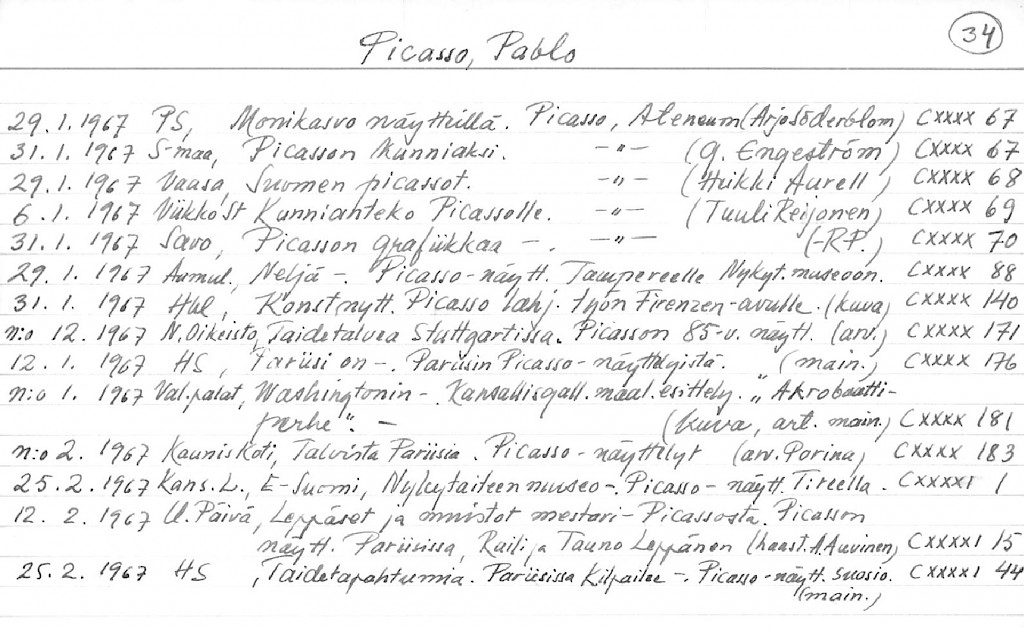 34
Picasso, Pablo
29.1.1967 PS, Monikasvo näytteillä. Picasso, Ateneum (Arjo Söderblom) CXXXX 67
31.1.1967 S-maa, Picasson kunniaksi. -"- (G. Engeström) CXXXX 67
29.1.1967 Vaasa, Suomen picassot. -"- (Heikki Aurell) CXXXX 68
6.1.1967 ViikkoSt Kunnianteko Picassolle. -"- (Tuuli Reijonen) CXXXX 69
31.1.1967 Savo, Picasson grafiikkaa -. -"- (-RP.) CXXXX 70
29.1.1967 Aamul., Neljä -. Picasso-näytt. Tampereelle Nykyt.museoon. CXXXX 88
31.1.1967 Hbl, Konstnytt. Picasso lahj. työn Firenzen-avulle. (kuva) CXXXX 140
n:o 12.1967 N.Oikeisto, Taidetalvea Stuttgartissa. Picasson 85-v. näytt. (arv.) CXXXX 171
12.1.1967 HS, Pariisi on -. Pariisin Picasso-näyttelyistä. (main.) CXXXX 176
n:o 1.1967 Val.palat, Washingtonin -. Kansallisgall. maal. esittely. "Akrobaatti-
perhe". - (kuva, art. main.) CXXXX 181
n:o 2.1967 Kaunis Koti, Talvista Pariisia. Picasso-näyttelyt (arv. Porina) CXXXX 183
25.2.1967 Kans.L., E-Suomi, Nykytaiteen museo -. Picasso-näytt. Treella. CXXXXI 1
12.2.1967 U.Päivä, Leppäset ja muistot mestari-Picassosta. Picasson
näytt. Pariisissa, Raili ja Tauno Leppänen (haast. A.Auvinen) CXXXXI 15
25.2.1967 HS, Taidetapahtumia. Pariisissa kilpailee -. Picasso-näytt. suosio. CXXXXI 44
(main.)